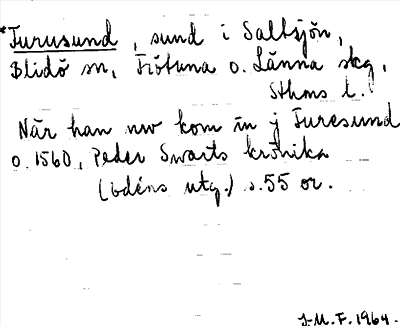 *Furusund, sund i Saltsjön,
Blidö sn, Frötuna o. Länna skg,
Sthms l.
När han nw kom in j Furesund
o. 1560, Peder Swarts krönika
(Edéns utg.) s. 55 or.
J.M.F. 1964.